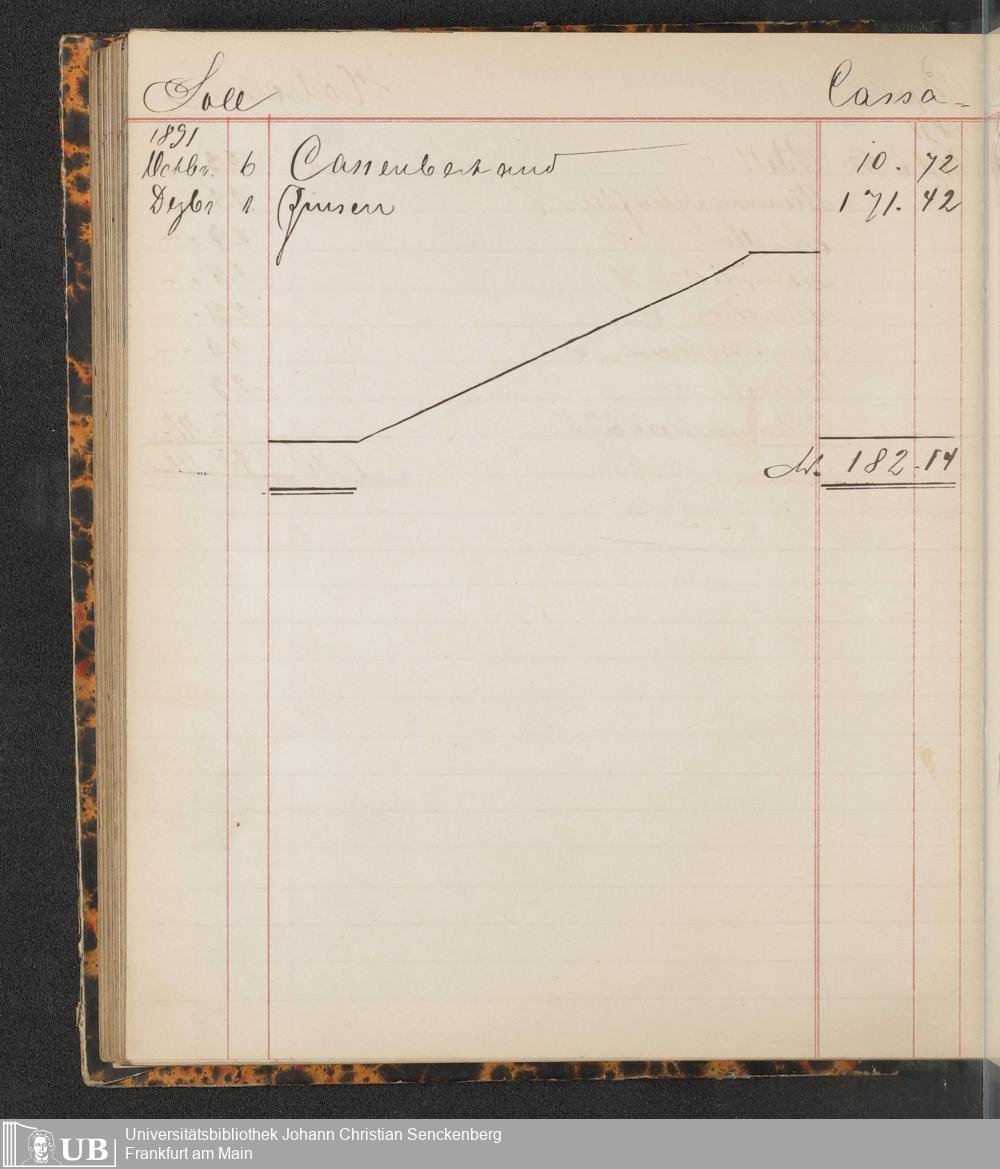 Soll Cassa-
1891
Octbr. 6 Cassenbestand 10.72
Dezbr 1 Zinsen 171.42
M. 182.14
UB Universitätsbibliothek Johann Christian Senckenberg
Frankfurt am Main